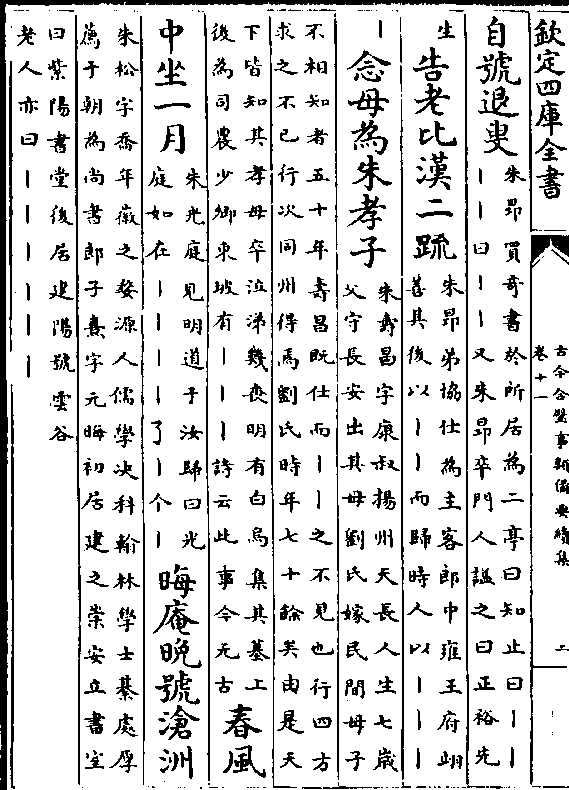 欽定四庫全書
古今合璧事類備要續集
卷十一
二
自號退叟
朱昂買奇書於所居為二亭曰知止曰丨丨
丨丨曰丨丨又朱昂卒門人諡之曰正裕先
生
告老比漢二疏
朱昂弟協仕為主客郎中雍王府翊
善其後以丨丨而歸時人以丨丨丨
丨
念母為朱孝子
朱壽昌字康叔揚州天長人生七歲
父守長安出其母劉氏嫁民間母子
不相知者五十年壽昌既仕而丨丨之不見也行四方
求之不已行次同州得焉劉氏時年七十餘矣由是天
下皆知其孝母卒泣涕幾喪明有白烏集其墓上
後為司農少卿東坡有丨丨丨詩云此事今无古
春風
中坐一月
朱光庭見明道于汝歸曰光
庭如在丨丨丨丨了丨个丨
晦庵晚號滄洲
朱松字喬年徽之婺源人儒學決科翰林學士綦處厚
薦于朝為尚書郎子熹字元晦初居建之崇安立書室
曰紫陽書堂後居建陽號雲谷
老人亦曰丨丨丨丨丨丨